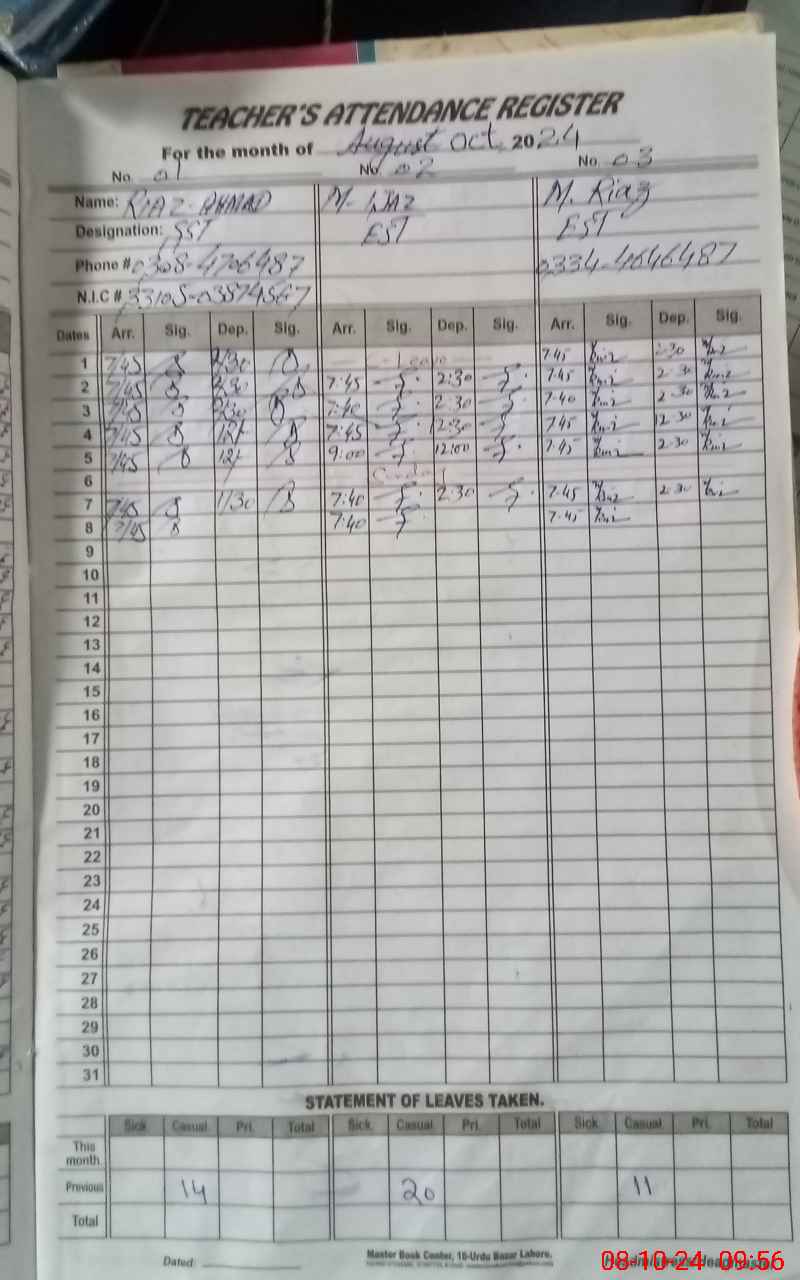 TEACHER'S ATTENDANCE REGISTER
For the month of August Oct. 2024
No. 01 No. 02 No. 03
Name: RIAZ AHMAD M. M. Riaz
Designation: SST EST EST
Phone # 0308-4706487 0334-4646487
N.I.C #
Dates Arr. Sig. Dep. Sig. Arr. Sig. Dep. Sig. Arr. Sig. Dep. Sig.
1 7/45 2/30 Leave 7.45 2.30
2 7/45 2/30 7:45 2:30 7.45 2.30
3 7/45 2/30 7:40 2:30 7.40 2.30
4 7/45 12/ 7:45 12:30 7.45 12.30
5 7/45 12/ 9:00 12:00 7.45 2.30
6
7 7/45 1/30 7:40 2:30 7.45 2.30
8 7/45 7:40 7.45
9
10
11
12
13
14
15
16
17
18
19
20
21
22
23
24
25
26
27
28
29
30
31
STATEMENT OF LEAVES TAKEN.
Sick Casual Pri. Total Sick. Casual Pri. Total Sick. Casual Pri. Total
This month
Previous 14 20 11
Total
Dated:
Master Book Center, 16-Urdu Bazar Lahore.
08-10-24 09:56